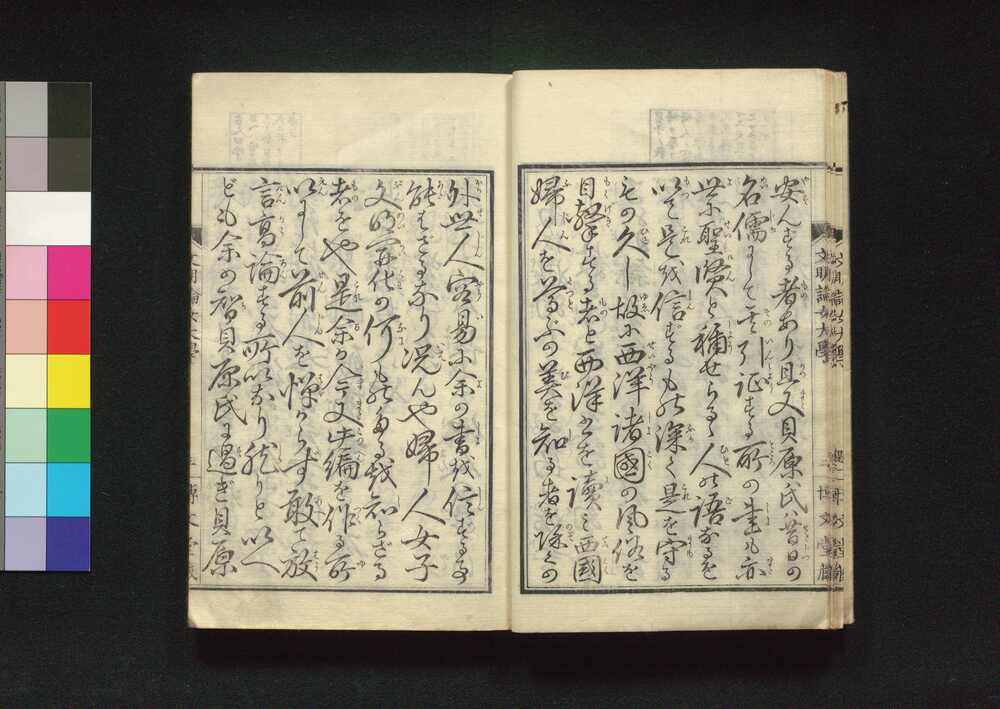 安んずる者あり且又貝原氏ハ昔日の
名儒にして其引証する所の書も亦
世に聖賢と稱せらるゝ人の語なるを
以て是を信ずるもの深く是を守る
もの久し故に西洋諸國の風俗を
目撃する者と西洋書を讀み西國
婦人を尊ぶの美を知る者を除くの
外世人容易に余の言を信ずる事
能はざるなり况んや婦人女子
文明開化の何ものたるを知らざる
者をや是余が今又此編を作る所
以にして前人を憚からず敢て放
言高論する所以なり然りと以へ
ども余の智貝原氏に過ぎ貝原
文明論女大學
博文堂